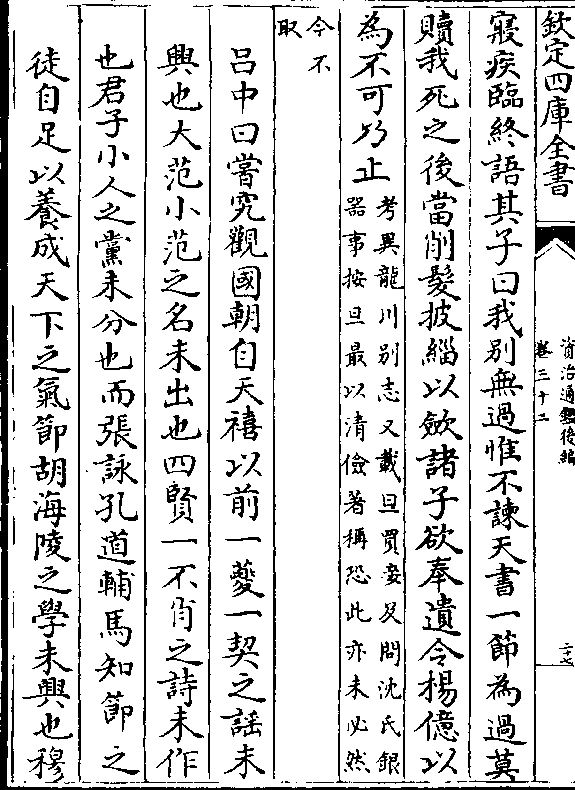 欽定四庫全書
資治通鑑後編
卷三十二
二十七
寢疾臨終語其子曰我別無過惟不諫天書一節為過莫
贖我死之後當削髮披緇以歛諸子欲奉遺令楊億以
為不可乃止
考異龍川別志又載旦買妾及問沈氏銀
器事按旦最以清儉著稱恐此亦未必然
今不
取
呂中曰嘗究觀國朝自天禧以前一夔一契之謡未
興也大范小范之名未出也四賢一不肖之詩未作
也君子小人之黨未分也而張詠孔道輔馬知節之
徒自足以養成天下之氣節胡海陵之學未興也穆